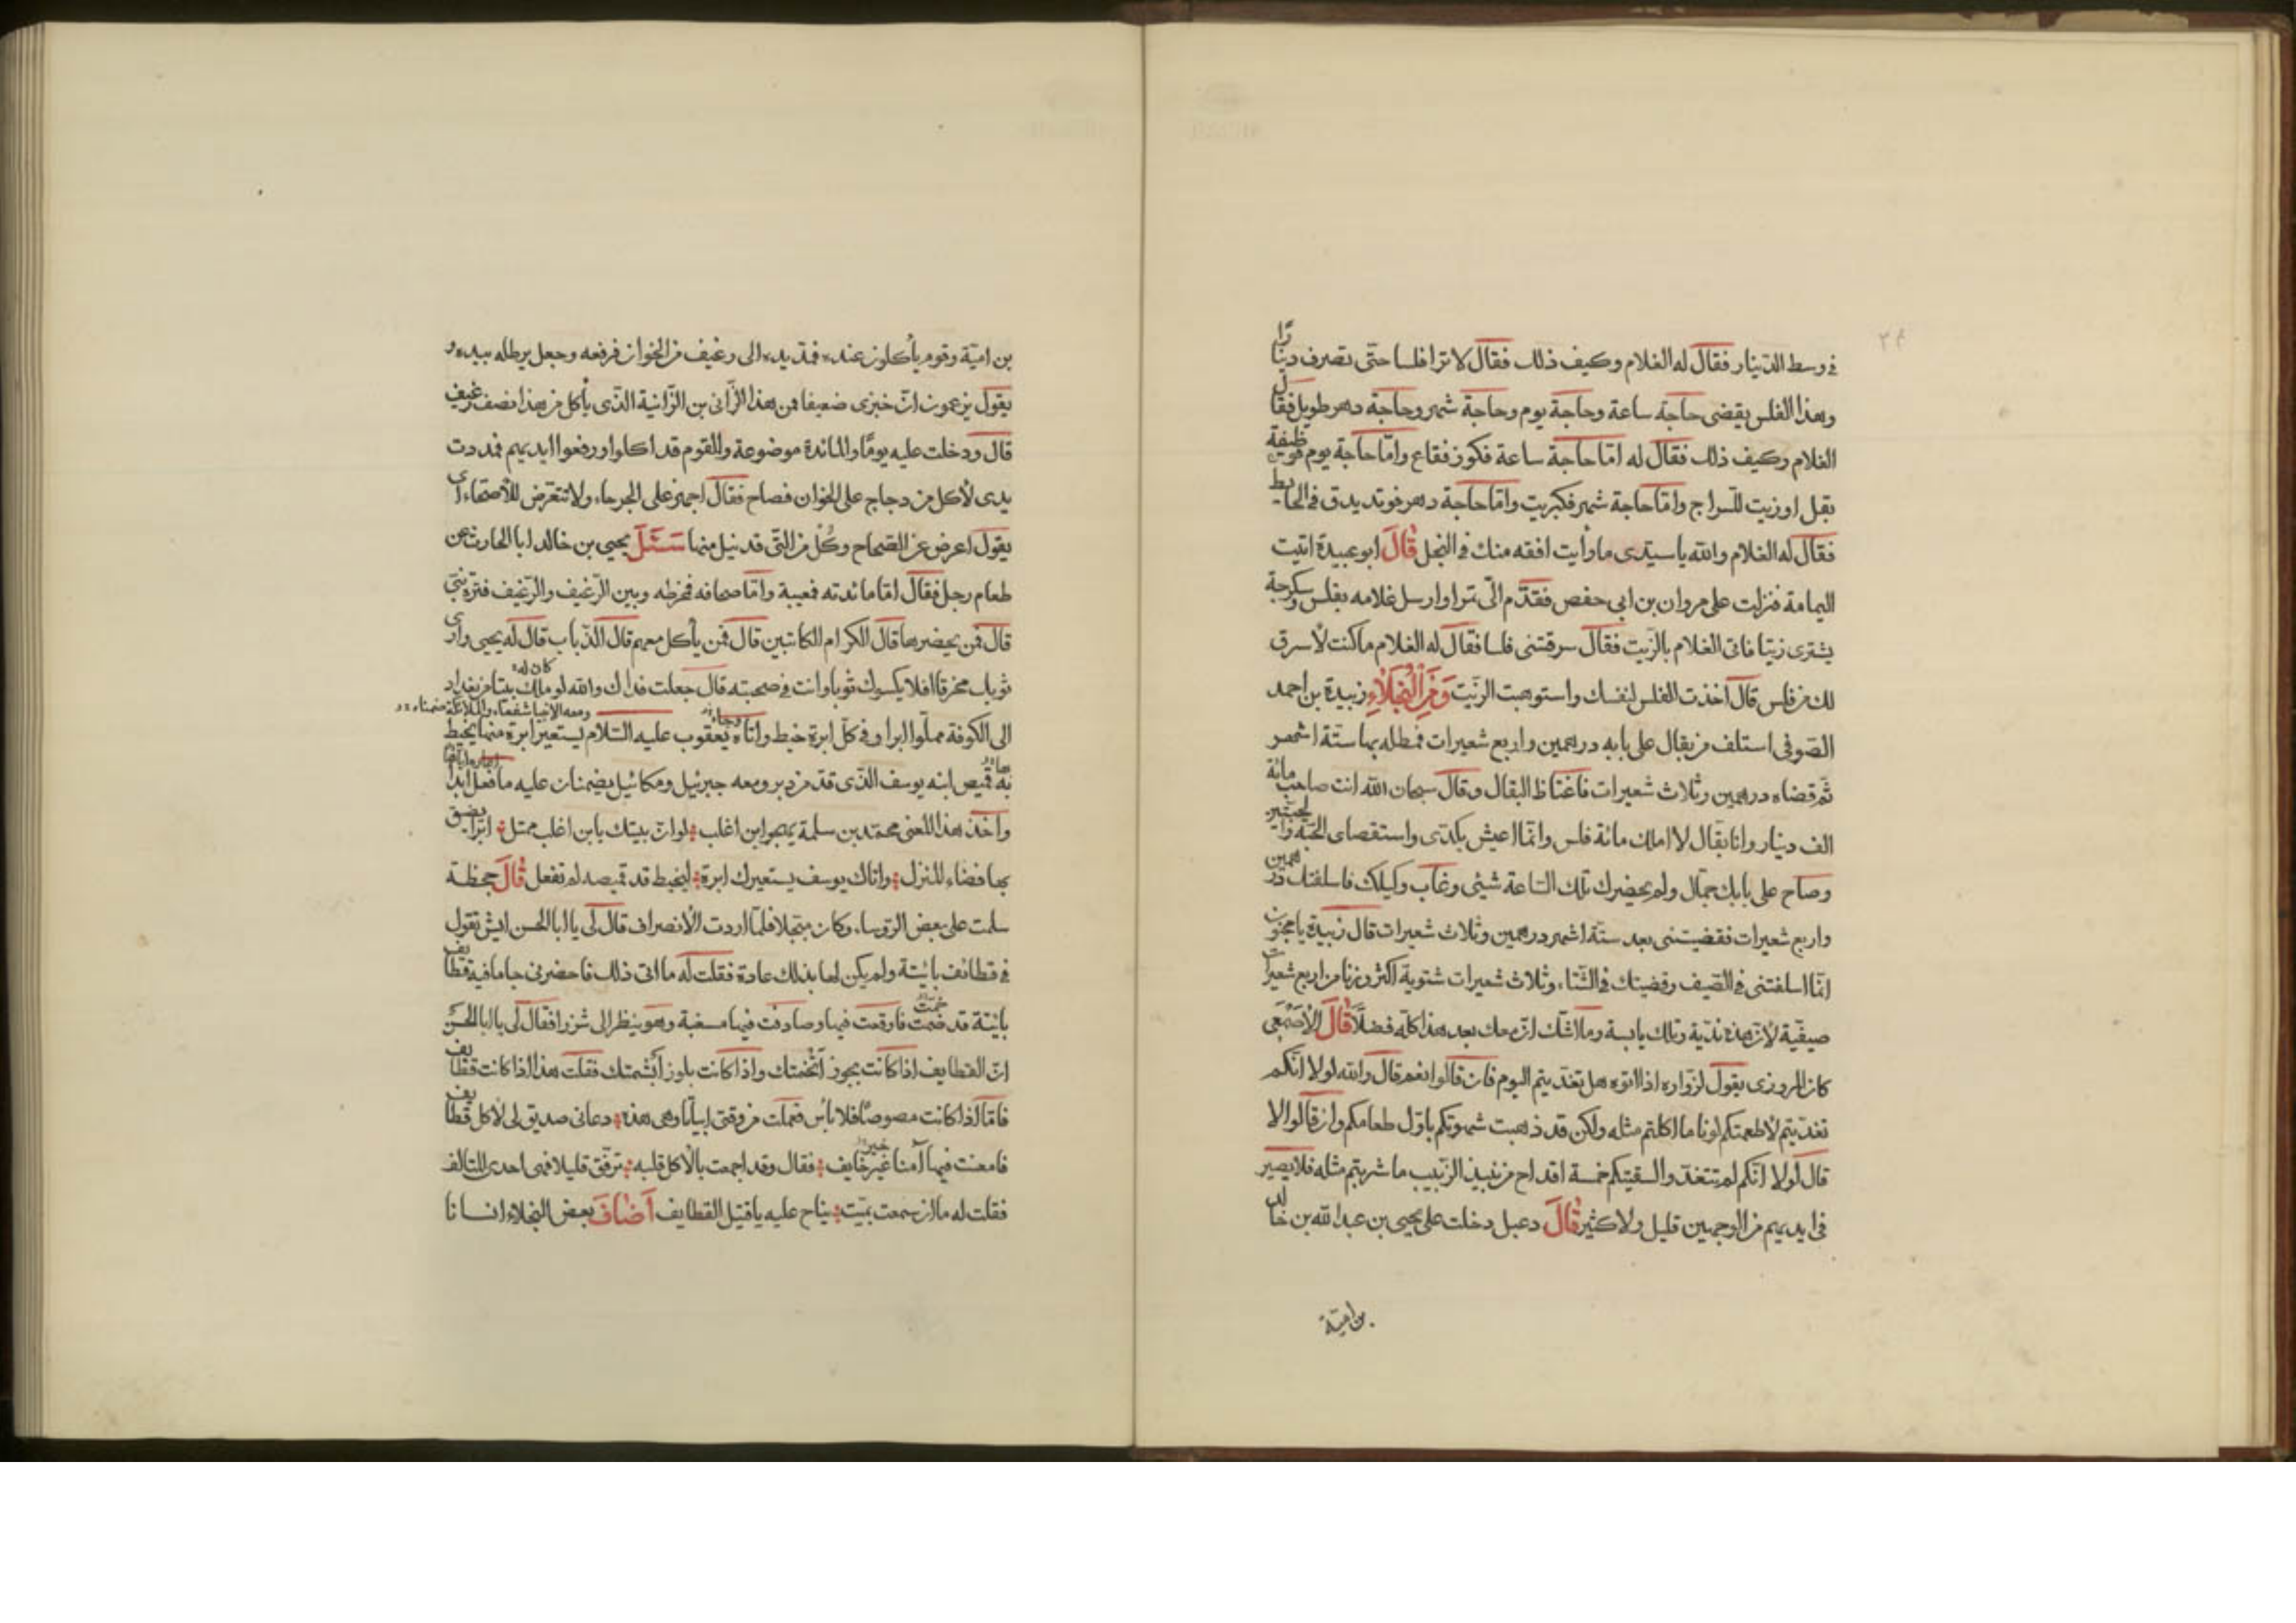 ٣٤
في وسط الدّينار فقال له الغلام وكيف ذلك فقال لا ترا فلسا حتّى تصرف دينارًا
وهذا الفلس يقضى حاجة ساعة وحاجة يوم وحاجة شهر وحاجة دهر طويل فقال
الغلام وكيف ذلك فقال له امّا حاجة ساعة فكوز فقاع وامّا حاجة يوم
بقل او زيت للسّراج وامّا حاجة شهر فكبريت وامّا حاجة دهر فوتد يدق في الحايط
فقال له الغلام والله يا سيّدى ما رأيت افقه منك في البخل قال ابو عبيدة اتيت
اليمامة فنزلت على مروان بن ابي حفص فقدّم الىّ تمرا وارسل غلامه بفلس وسكرجة
يشترى زيتا فاتى الغلام بالزّيت فقال سرقتنى فلسا فقال له الغلام ما كنت لأسرق
لك من فلس قال اخذت الفلس لنفسك واستوهبت الزّيت ومن البخلاء زبيدة بن احمد
الصّوفى استلف من بقال على بابه درهمين واربع شعيرات فمطله بها ستّة اشهر
ثم قضاه درهمين وثلاث شعيرات فاغتاظ البقال وقال سبحان الله انت صاحب مائة
الف دينار وانا بقّال لا املك مائة فلس وانّما اعيش بكدّى واستقصاى الحبّة والحبّتين
وصاح على بابك جمّال ولم يحضرك تلك السّاعة شيئى وغاب وكيلك فاسلفتك درهمين
واربع شعيرات فقضيتنى بعد ستّة اشهر درهمين وثلاث شعيرات قال زبيدة يا مجنون
انّما اسلفتنى في الصّيف وقضيتك في الشّتاء وثلاث شعيرات شتوية اكثر وزنا من اربع شعيرات
صيفيّة لأن هذه نديّة وتلك يابسة وما اشك ان معك بعد هذا كلّه فضلا قال الأصمعى
كان المروزى يقول لزوّاره اذا اتوه هل تغدّيتم اليوم فان قالوا نعم قال والله لولا انّكم
تغدّيتم لأطعمتكم لونا ما اكلتم مثله ولكن قد ذهبت شهوتكم باوّل طعامكم وان قالوا لا
قال لولا انّكم لم تتغدّوا لسقيتكم خمسة اقداح من نبيذ الزّبيب ما شربتم مثله فلا يصير
في ايديهم من الوجهين قليل ولا كثير قال دعبل دخلت على يحيى بن عبد الله بن خالد
بن اميّة
بن اميّة وقوم يأكلون عنده فمدّ يده الى رغيف من الخوان فرفعه وجعل يرطله بيده و
يقول يزعمون انّ خبزى ضعيفا فمن هذا الزّانى بن الزّانية الّذى يأكل من هذا نصف رغيف
قال ودخلت عليه يومًا والمائدة موضوعة والقوم قد اكلوا ورفعوا ايديهم فمددت
يدى لأكل من دجاج على الخوان فصاح فقال اجهز على الجرحاء ولا تتعرّض للأصحّاء اى
يقول اعرض عن الصّحاح وكل من الّتى قد نيل منها سئل يحيى بن خالد ابا الحارث عن
طعام رجل فقال امّا مائدته فمعيبة وامّا صحافه فمخرطه وبين الرّغيف والرّغيف فترة نبىّ
قال فمن يحضرها قال الكرام الكاتبين قال فمن يأكل معهم قال الذّباب قال له يحيى وارى
ثوبك مخرقا افلا يكسوك ثوبا وانت في صحبته قال جعلت فداك والله لو كان له ملك بيتا من بغداد
الى الكوفة مملّوا ابرا وفي كلّ ابرة خيط واتاه يعقوب عليه السّلام يستعير ابرة منها يخيط
ومعه الانبيا شفعاء والملائكة ضمناء
به قميص ابنه يوسف الّذى قدّ من دبر ومعه جبرئيل ومكائيل يضمنان عليه ما فعل ابدا
واخذ هذا المعنى محمّد بن سلمة يهجو ابن اغلب لو انّ بيتك يا بن اغلب ممتل ابرًا يضيق
بها فضاء المنزل واتاك يوسف يستعيرك ابرة ليخيط قد قميصه لم تفعل قال جحظة
سلمت على بعض الرّوساء وكان مبخلا فلمّا اردت الأنصراف قال لى يا ابا الحسن ايش تقول
في قطائف بائتة ولم يكن لها بذلك عادة فقلت له ما اتى ذلك فاحضرنى جاما فيه قطايف
بائتة قد خمّت فاوقعت فيها وصادفت فيها مسغبة وهو ينظر الى شزرا فقال لى يا ابا الحسن
انّ القطايف اذا كانت بجوز اتخمتك واذا كانت بلوز ابشمتك فقلت هذا اذا كانت قطايف
فامّا اذا كانت مصوصًا فلا بأس فعملت من وقتى ابياتا وهى هذه دعانى صديق لى لأكل قطايف
فامعنت فيها آمنا غير خايف فقال وقد اجمعت بالأكل قلبه ترفّق قليلا فهى احدى المتالف
فقلت له ما ان سمعت بميّت يناح عليه يا قتيل القطايف اضاف بعض البخلاء انسانا